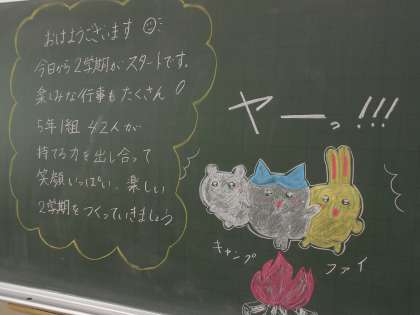 おはようございます
今日から2学期がスタートです。
楽しみな行事もたくさん！
5年1組 42人が
持てる力を出し合って
笑顔いっぱい、楽しい
2学期をつくっていきましょう
ヤーッ!!!
キャンプ
ファイ